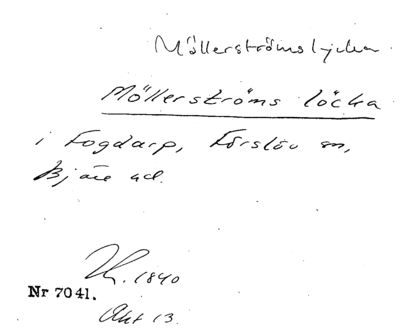 Möllerströmslyckan
Möllerströms löcka
i Fogdarp, Förslöv sn,
Bjäre hd.
1840
Nr 7041.
Akt 13.